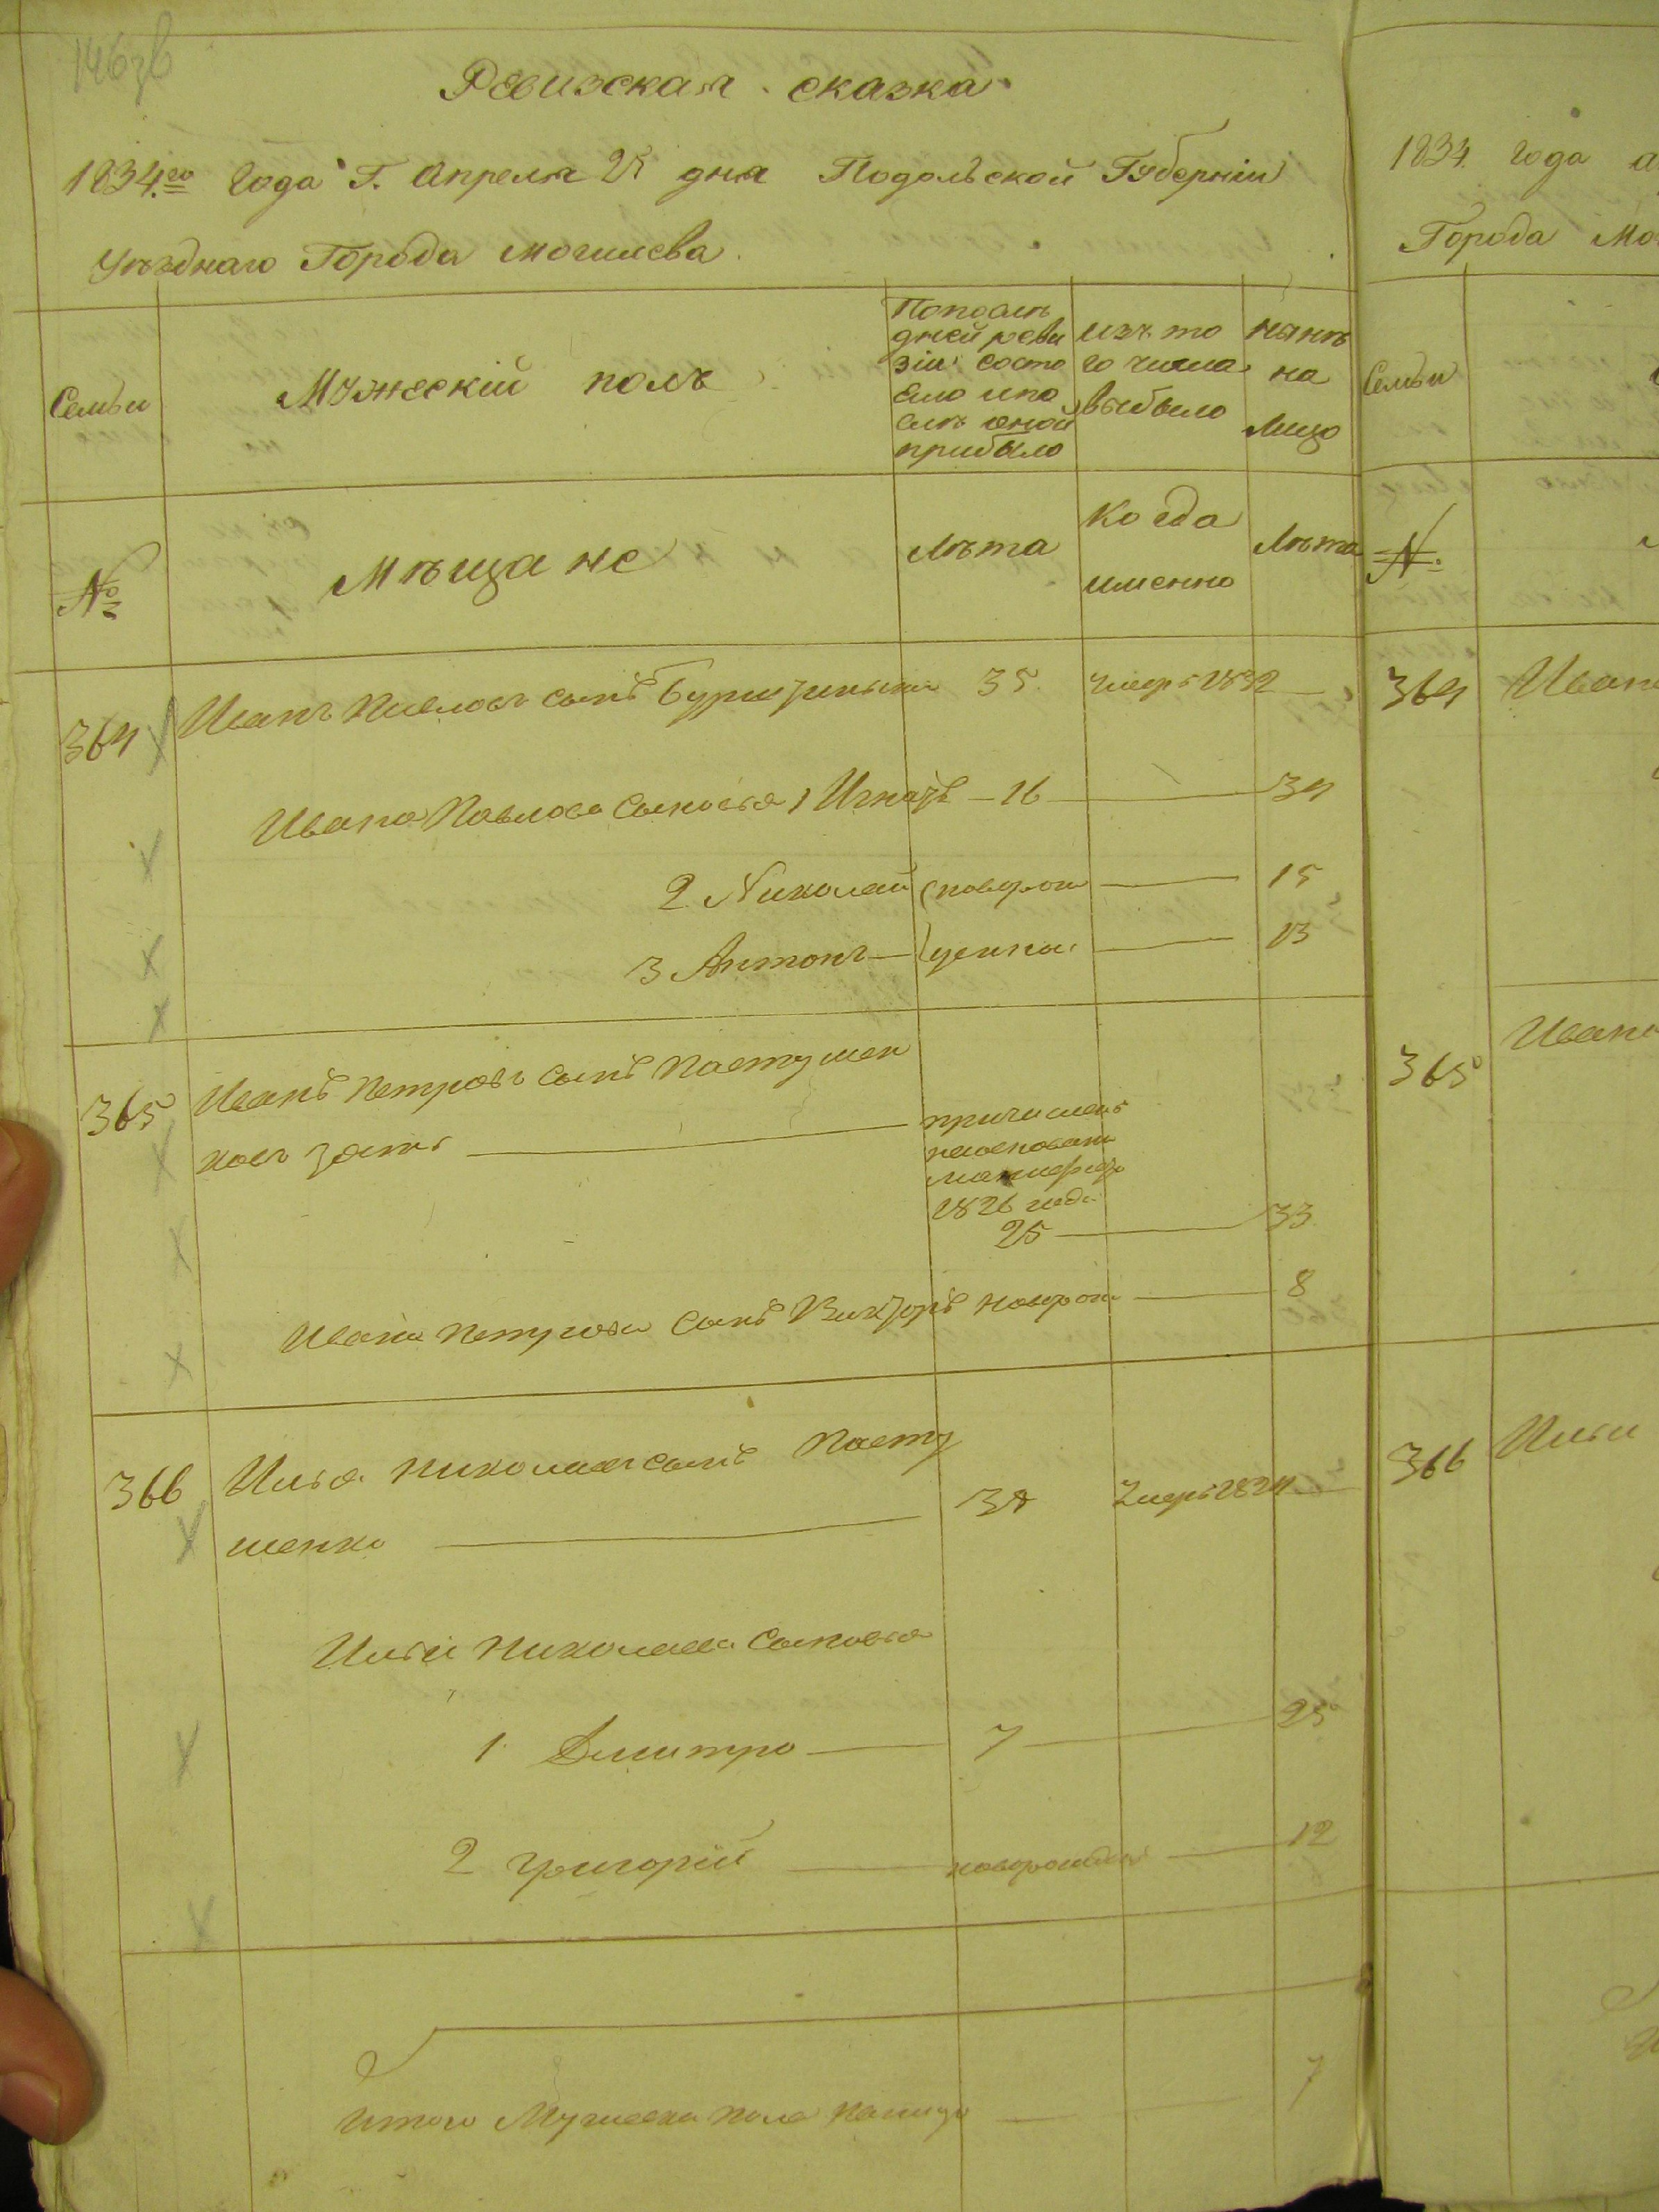 146 зв
Ревизская сказка
1834.го Года Г. Апреля 25 дня Подольской Губерніи
Уѣзднаго Города Могилева.
Семьи
Мужескій полъ
По послѣ
дней реви
зіи состо
яло и по
слѣ оной
прибыло
изъ то
го числа
выбыло
нынѣ
на
лицо
№
Мѣщане
Лѣта
Когда
именно
Лѣта
364
Иванъ Павловъ сынъ 35 умеръ 1832 —
Ивана Павлова сыновья 1 Игнатъ — 16 — 34
2 Николай (новорож — 15
3 Антонъ — (денны. — 13
365
Иванъ Петровъ сынъ Пастушен
ковъ зять —
причисленъ
на основании
манифеста
1826 года
25 — 33
Ивана Петрова сынъ Викторъ новорож — 8
366
Илья Николаевъ сынъ Пасту
шенко — 38 Умеръ 1824 —
Ильи Николаева сыновья
1. Дмитро — 7 — 25
2 Григорій — новорожден — 12
Итого Мужеска пола налицо — 7
1834 года а
Города Мо
Семьи
№.
364 Иван
365 Иван
366 Ильи